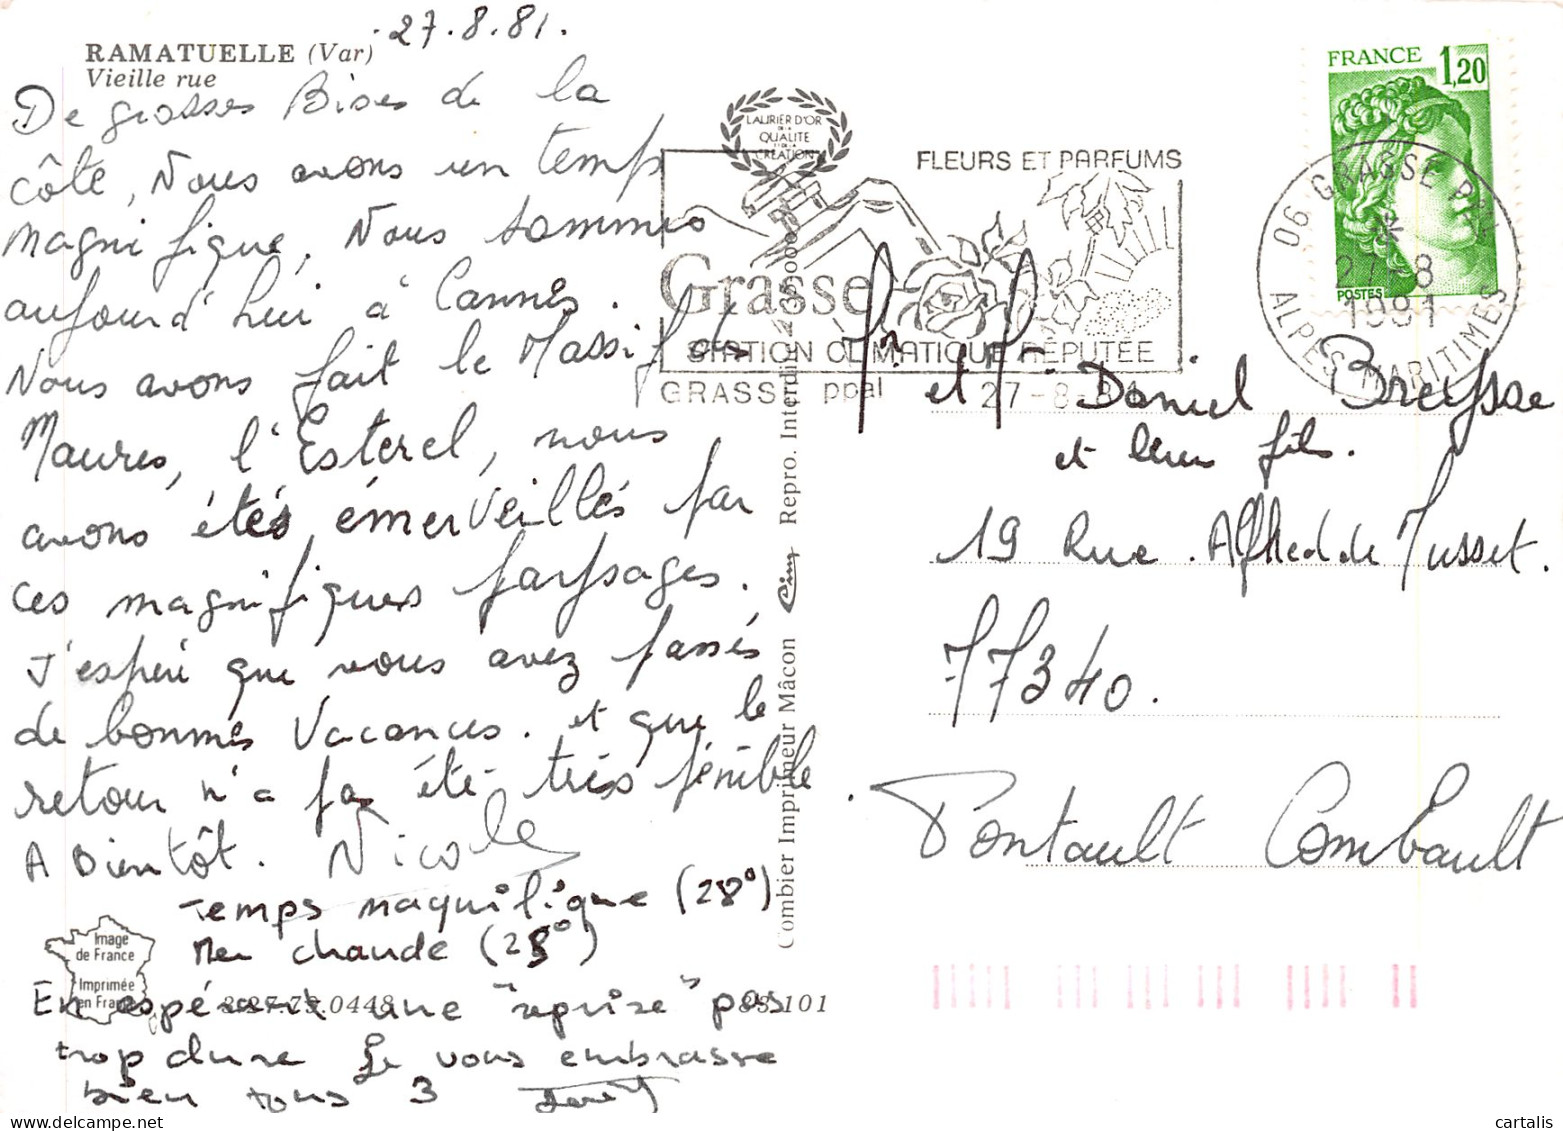 27.8.81.
RAMATUELLE (Var)
Vieille rue
De grosses Bises de la
côte, Nous avons un temps
magnifique. Nous sommes
aujourd'hui à Cannes.
Nous avons fait le Massif des
Maures, l'Esterel, nous
avons étés émerveillés par
ces magnifiques paysages.
J'espère que vous avez passés
de bonnes Vacances. et que le
retour n'a pas été très pénible.
A Bientôt. Nicole
Temps magnifique (28°)
Mer chaude (25°)
En espérant une "reprise" pas
trop dure Je vous embrasse
bien tous 3
Image
de France
Imprimée
en France
0448
83.101
Combier Imprimeur Mâcon Cim Repro. Interdite
LAURIER D'OR
DE LA
QUALITE
ET DE LA
CREATION
FLEURS ET PARFUMS
Grasse
STATION CLIMATIQUE RÉPUTÉE
GRASSE ppal 27-8-81
FRANCE 1,20
POSTES
06 GRASSE PPAL
27-8
1981
ALPES MARITIMES
Mr et Me Daniel Breysse
et leur fils.
19 Rue Alfred de Musset.
77340.
Pontault Combault
cartalis